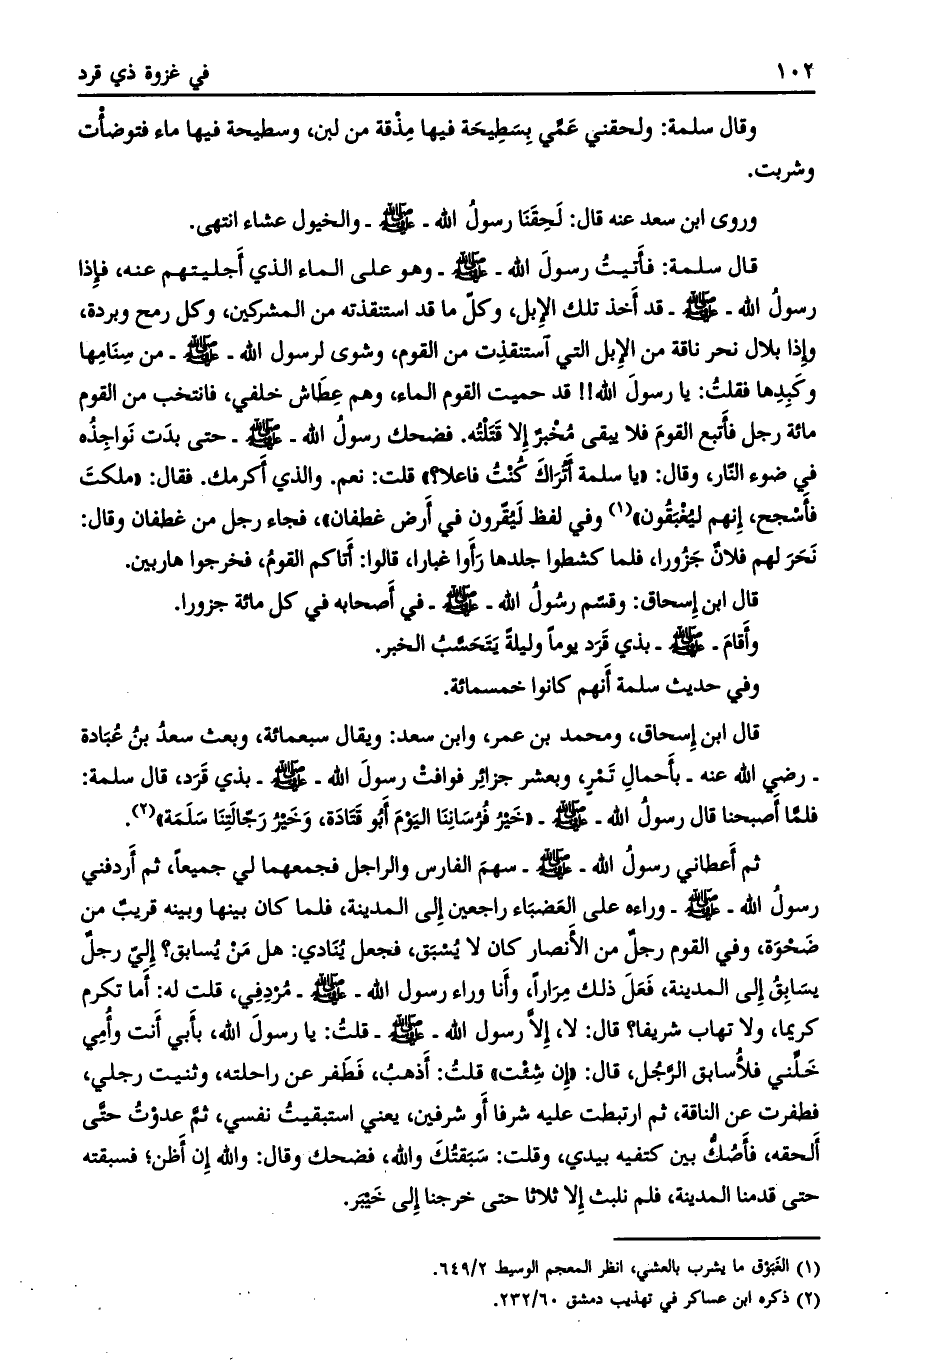 ١٠٢ في غزوة ذي قرد
وقال سلمة: ولحقني عَمِّي بِسَطِيحَة فيها مِذْقة من لبن، وسطيحة فيها ماء فتوضأْت
وشربت.
وروى ابن سعد عنه قال: لَحِقَنَا رسولُ الله ـ ﷺ ـ والخيول عشاء انتهى.
قال سلمة: فأَتيتُ رسولَ الله ـ ﷺ ـ وهو على الماء الذي أَجليتهم عنه، فإِذا
رسولُ الله ـ ﷺ ـ قد أَخذ تلك الإِبل، وكلّ ما قد استنقذته من المشركين، وكل رمح وبردة،
وإِذا بلال نحر ناقة من الإِبل التي آستنقذت من القوم، وشوى لرسول الله ـ ﷺ ـ من سِنَامِها
وكَبِدِها فقلتُ: يا رسولَ الله!! قد حميت القوم الماء، وهم عِطَاش خلفي، فانتخب من القوم
مائة رجل فأَتبع القومَ فلا يبقى مُخْبرٌ إِلا قَتَلْتُه. فضحك رسولُ الله ـ ﷺ ـ حتى بدَت نَواجِذُه
في ضوء النّار، وقال: «يا سلمة أَتُرَاكَ كُنْتُ فاعلا؟» قلت: نعم. والذي أَكرمك. فقال: «ملكتَ
فأَسْجح، إِنهم ليُغْبَقُون»(١) وفي لفظ لَيُقَّرون في أَرض غطفان»، فجاء رجل من غطفان وقال:
نَحَرَ لهم فلانٌ جَزُورا، فلما كشطوا جلدها رَأَوا غبارا، قالوا: أَتاكم القومُ، فخرجوا هاربين.
قال ابن إِسحاق: وقسّم رسُولُ الله ـ ﷺ ـ في أَصحابه في كل مائة جزورا.
وأَقامَ ـ ﷺ ـ بذي قَرَد يوماً وليلةً يَتَحَسَّبُ الخبر.
وفي حديث سلمة أَنهم كانوا خمسمائة.
قال ابن إِسحاق، ومحمد بن عمر، وابن سعد: ويقال سبعمائة، وبعث سعدُ بنُ عُبَادة
ـ رضي الله عنه ـ بأَحمالِ تَمْرٍ، وبعشر جزائِر فوافتْ رسولَ الله ـ ﷺ ـ بذي قَرَد، قال سلمة:
فلمَّا أَصبحنا قال رسولُ الله ـ ﷺ ـ «خَيْرُ فُرْسَانِنَا اليَوْمَ أَبُو قَتَادَة، وَخَيْرُ رَجّالَتِنَا سَلَمَة»(٢).
ثم أَعطاني رسولُ الله ـ ﷺ ـ سهمَ الفارس والراجل فجمعهما لي جميعاً، ثم أَردفني
رسولُ الله ـ ﷺ ـ وراءه على العَضبَاء راجعين إِلى المدينة، فلما كان بينها وبينه قريبٌ من
ضَحْوَة، وفي القوم رجلٌ من الأَنصار كان لا يُسْبَق، فجعل يُنَادي: هل مَنْ يُسابق؟ إِليّ رجلٌ
يسَابِقُ إِلى المدينة، فَعَلَ ذلك مِرَاراً، وأَنا وراء رسول الله ـ ﷺ ـ مُرْدِفِي، قلت له: أَما تكرم
كريما، ولا تهاب شريفا؟ قال: لا، إِلاَّ رسول الله ـ ﷺ ـ قلتُ: يا رسولَ الله، بأَبي أَنت وأُمِي
خَلِّني فلأُسابق الرَّجُل، قال: «إِن شِئْت» قلتُ: أَذهبُ، فَطَفر عن راحلته، وثنيت رجلي،
فطفرت عن الناقة، ثم ارتبطت عليه شرفا أَو شرفين، يعني استبقيتُ نفسي، ثمَّ عدوْتُ حتَّى
أَلحقه، فأَصُكُّ بين كتفيه بيدي، وقلت: سَبَقتُكَ والله، فضحك وقال: والله إِن أَظن؛ فسبقته
حتى قدمنا المدينة، فلم نلبث إِلا ثلاثا حتى خرجنا إِلى خَيْبَر.
(١) الغَبَوْق ما يشرب بالعشي، انظر المعجم الوسيط ٦٤٩/٢.
(٢) ذكره ابن عساكر في تهذيب دمشق ٢٣٢/٦٠.